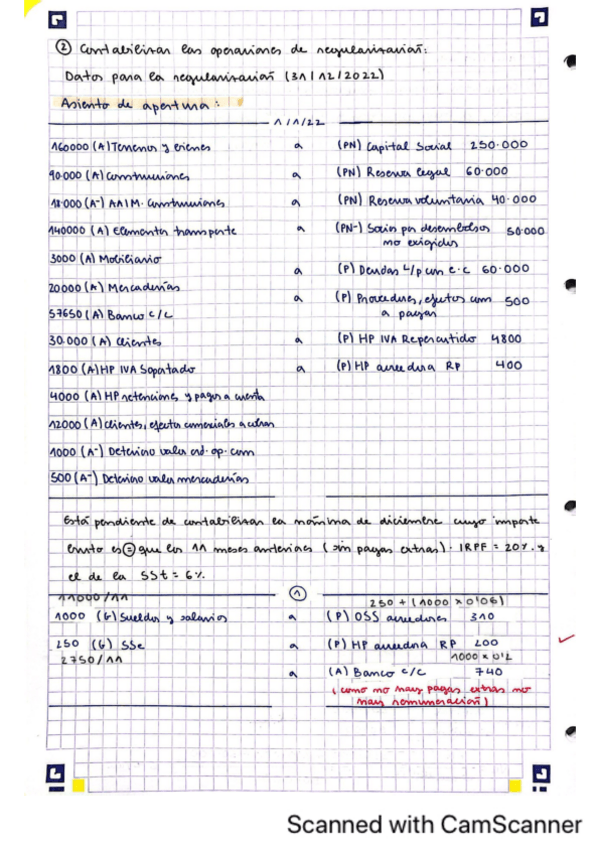 ② Contabilizar las operaciones de regularización:
Datos para la regularización (31/12/2022)
Asiento de apertura:
1/1/22
160000 (A) Terrenos y bienes a (PN) Capital Social 250.000
90.000 (A) Construcciones a (PN) Reserva legal 60.000
18.000 (A-) AAIM. Construcciones a (PN) Reserva voluntaria 40.000
140000 (A) Elementos transporte a (PN-) Socios por desembolsos no exigidos 50.000
3000 (A) Mobiliario
a (P) Deudas L/p con e.c 60.000
20000 (A) Mercaderías a (P) Proveedores, efectos com a pagar 500
57650 (A) Banco c/c
30.000 (A) Clientes a (P) HP IVA Repercutido 4800
1800 (A) HP IVA Soportado a (P) HP acreedora RP 400
4000 (A) HP retenciones y pagos a cuenta
12000 (A) Clientes, efectos comerciales a cobrar
1000 (A-) Deterioro valor crd. op. com
500 (A-) Deterioro valor mercaderías
Está pendiente de contabilizar la nómina de diciembre cuyo importe
bruto es = que los 11 meses anteriores (sin pagas extras). IRPF = 20%. y
el de la SSt = 6%.
11000/11 ① 250 + (1000 x 0'06)
1000 (G) Sueldos y salarios a (P) OSS acreedores 310
250 (G) SSe a (P) HP acreedora RP 200
2750/11 1000 x 0'2
a (A) Banco c/c 740
(como no hay pagas extras no
hay remuneración)
Scanned with CamScanner